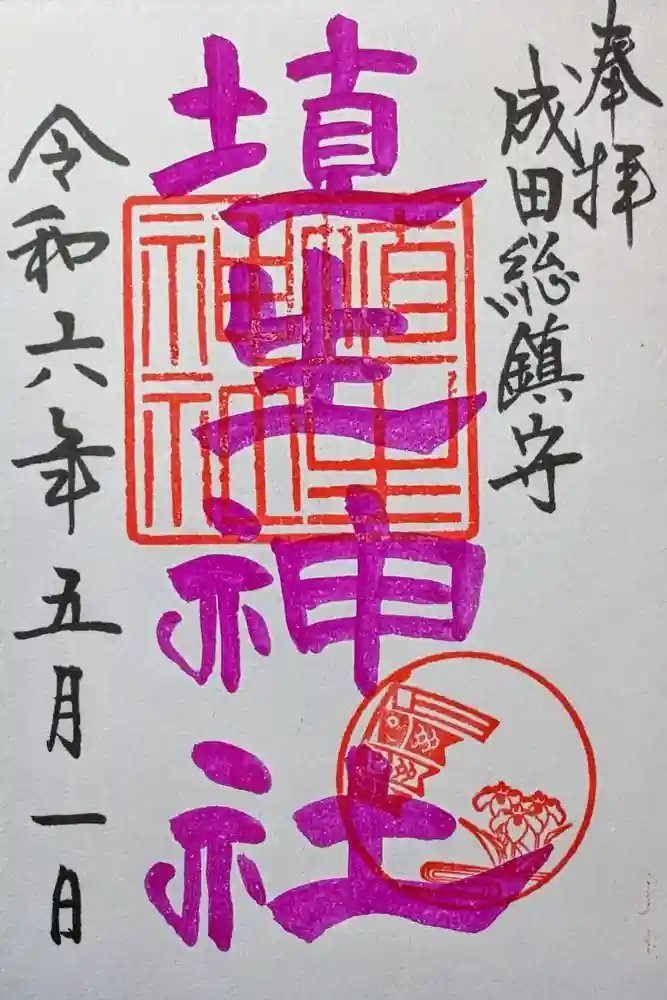 奉拝
成田総鎮守
埴生神社
埴生神社
令和六年五月一日